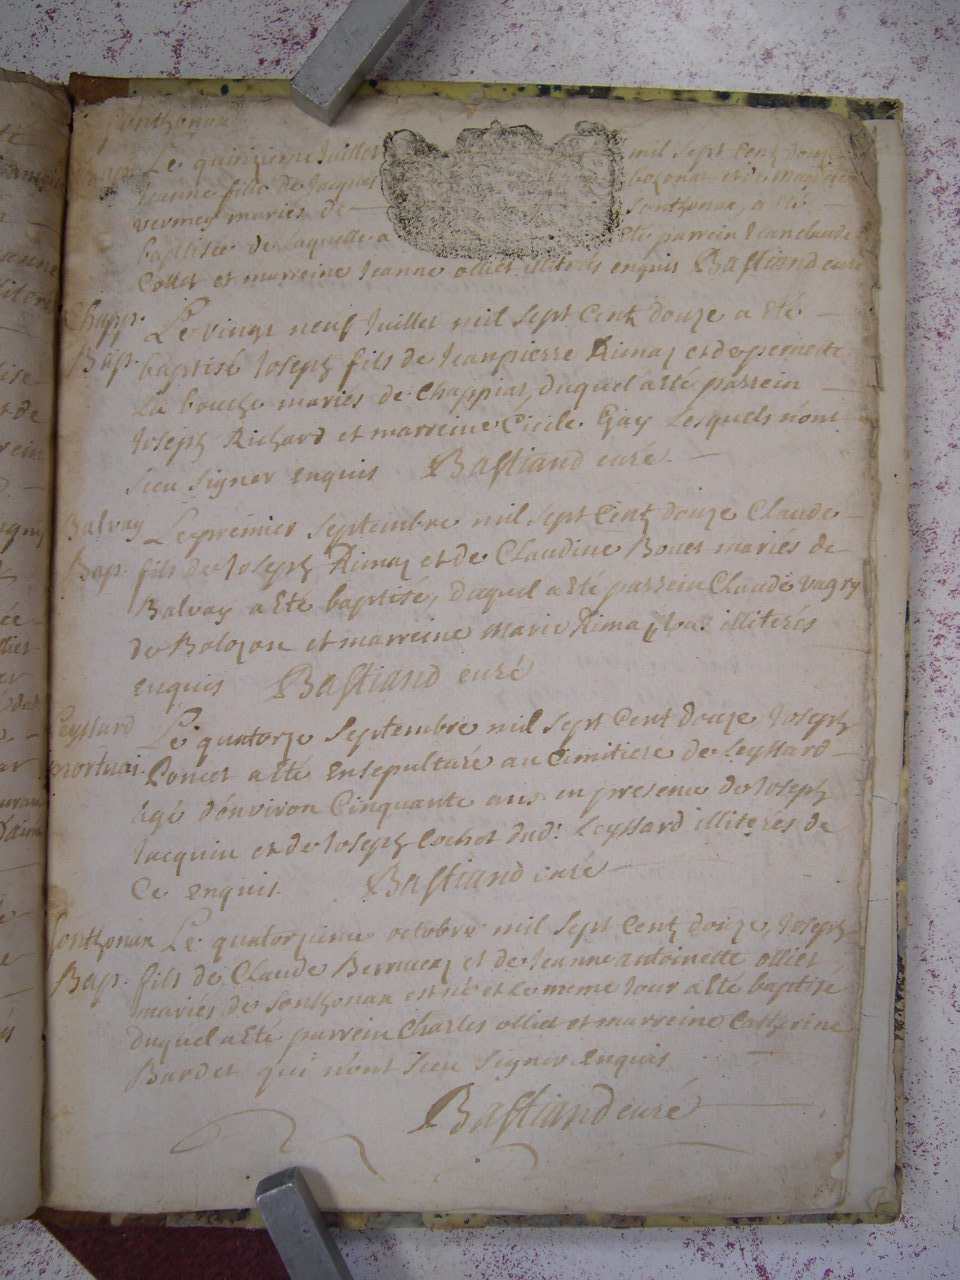 Sonthonax
Bap. Le quinzieme Juillet mil sept Cent douze
Jeanne fille de Jacques bozonat et de
vermey mariés de Sonthonax, a été
baptisée de laquelle a été parrein Jean claude
Collet et marreine Jeanne olliet illiterés enquis Bastiand curé
Chapp. Le vingt neuf Juillet mil sept Cent douze a été
Bap. baptisé Joseph fils de Jeanpierre Rimaz et de pernette
La bouche mariés de Chappiat, duquel a été parrein
Joseph Richard et marreine Cicile Gay Lesquels n'ont
sceu signer enquis Bastiand curé.
Balvay Le premier septembre mil sept Cent douze Claude
Bap. fils de Joseph Rimaz et de Claudine Bouet mariés de
Balvay a été baptisé, duquel a été parrein Claude vagry
de Bolozon et marreine Marie Rimaz illiterés
enquis Bastiand curé
Leyssard Le quatorze Septembre mil sept Cent douze Joseph
mortuai. Poncet a été ensepulturé au Cimitiere de Leyssard
âgé d'environ Cinquante ans en presence de Joseph
Jacquin et de Joseph Cochet dud: Leyssard illiterés de
Ce enquis. Bastiand curé
Sonthonax Le quatorzieme octobre mil sept Cent douze, Joseph
Bap. fils de Claude et de Jeanne antoinette olliet
mariés de Sonthonax est né et Le meme Jour a été baptisé
duquel a été parrein Charles olliet et marreine Catherine
Bardet qui n'ont sceu signer enquis
Bastiand curé